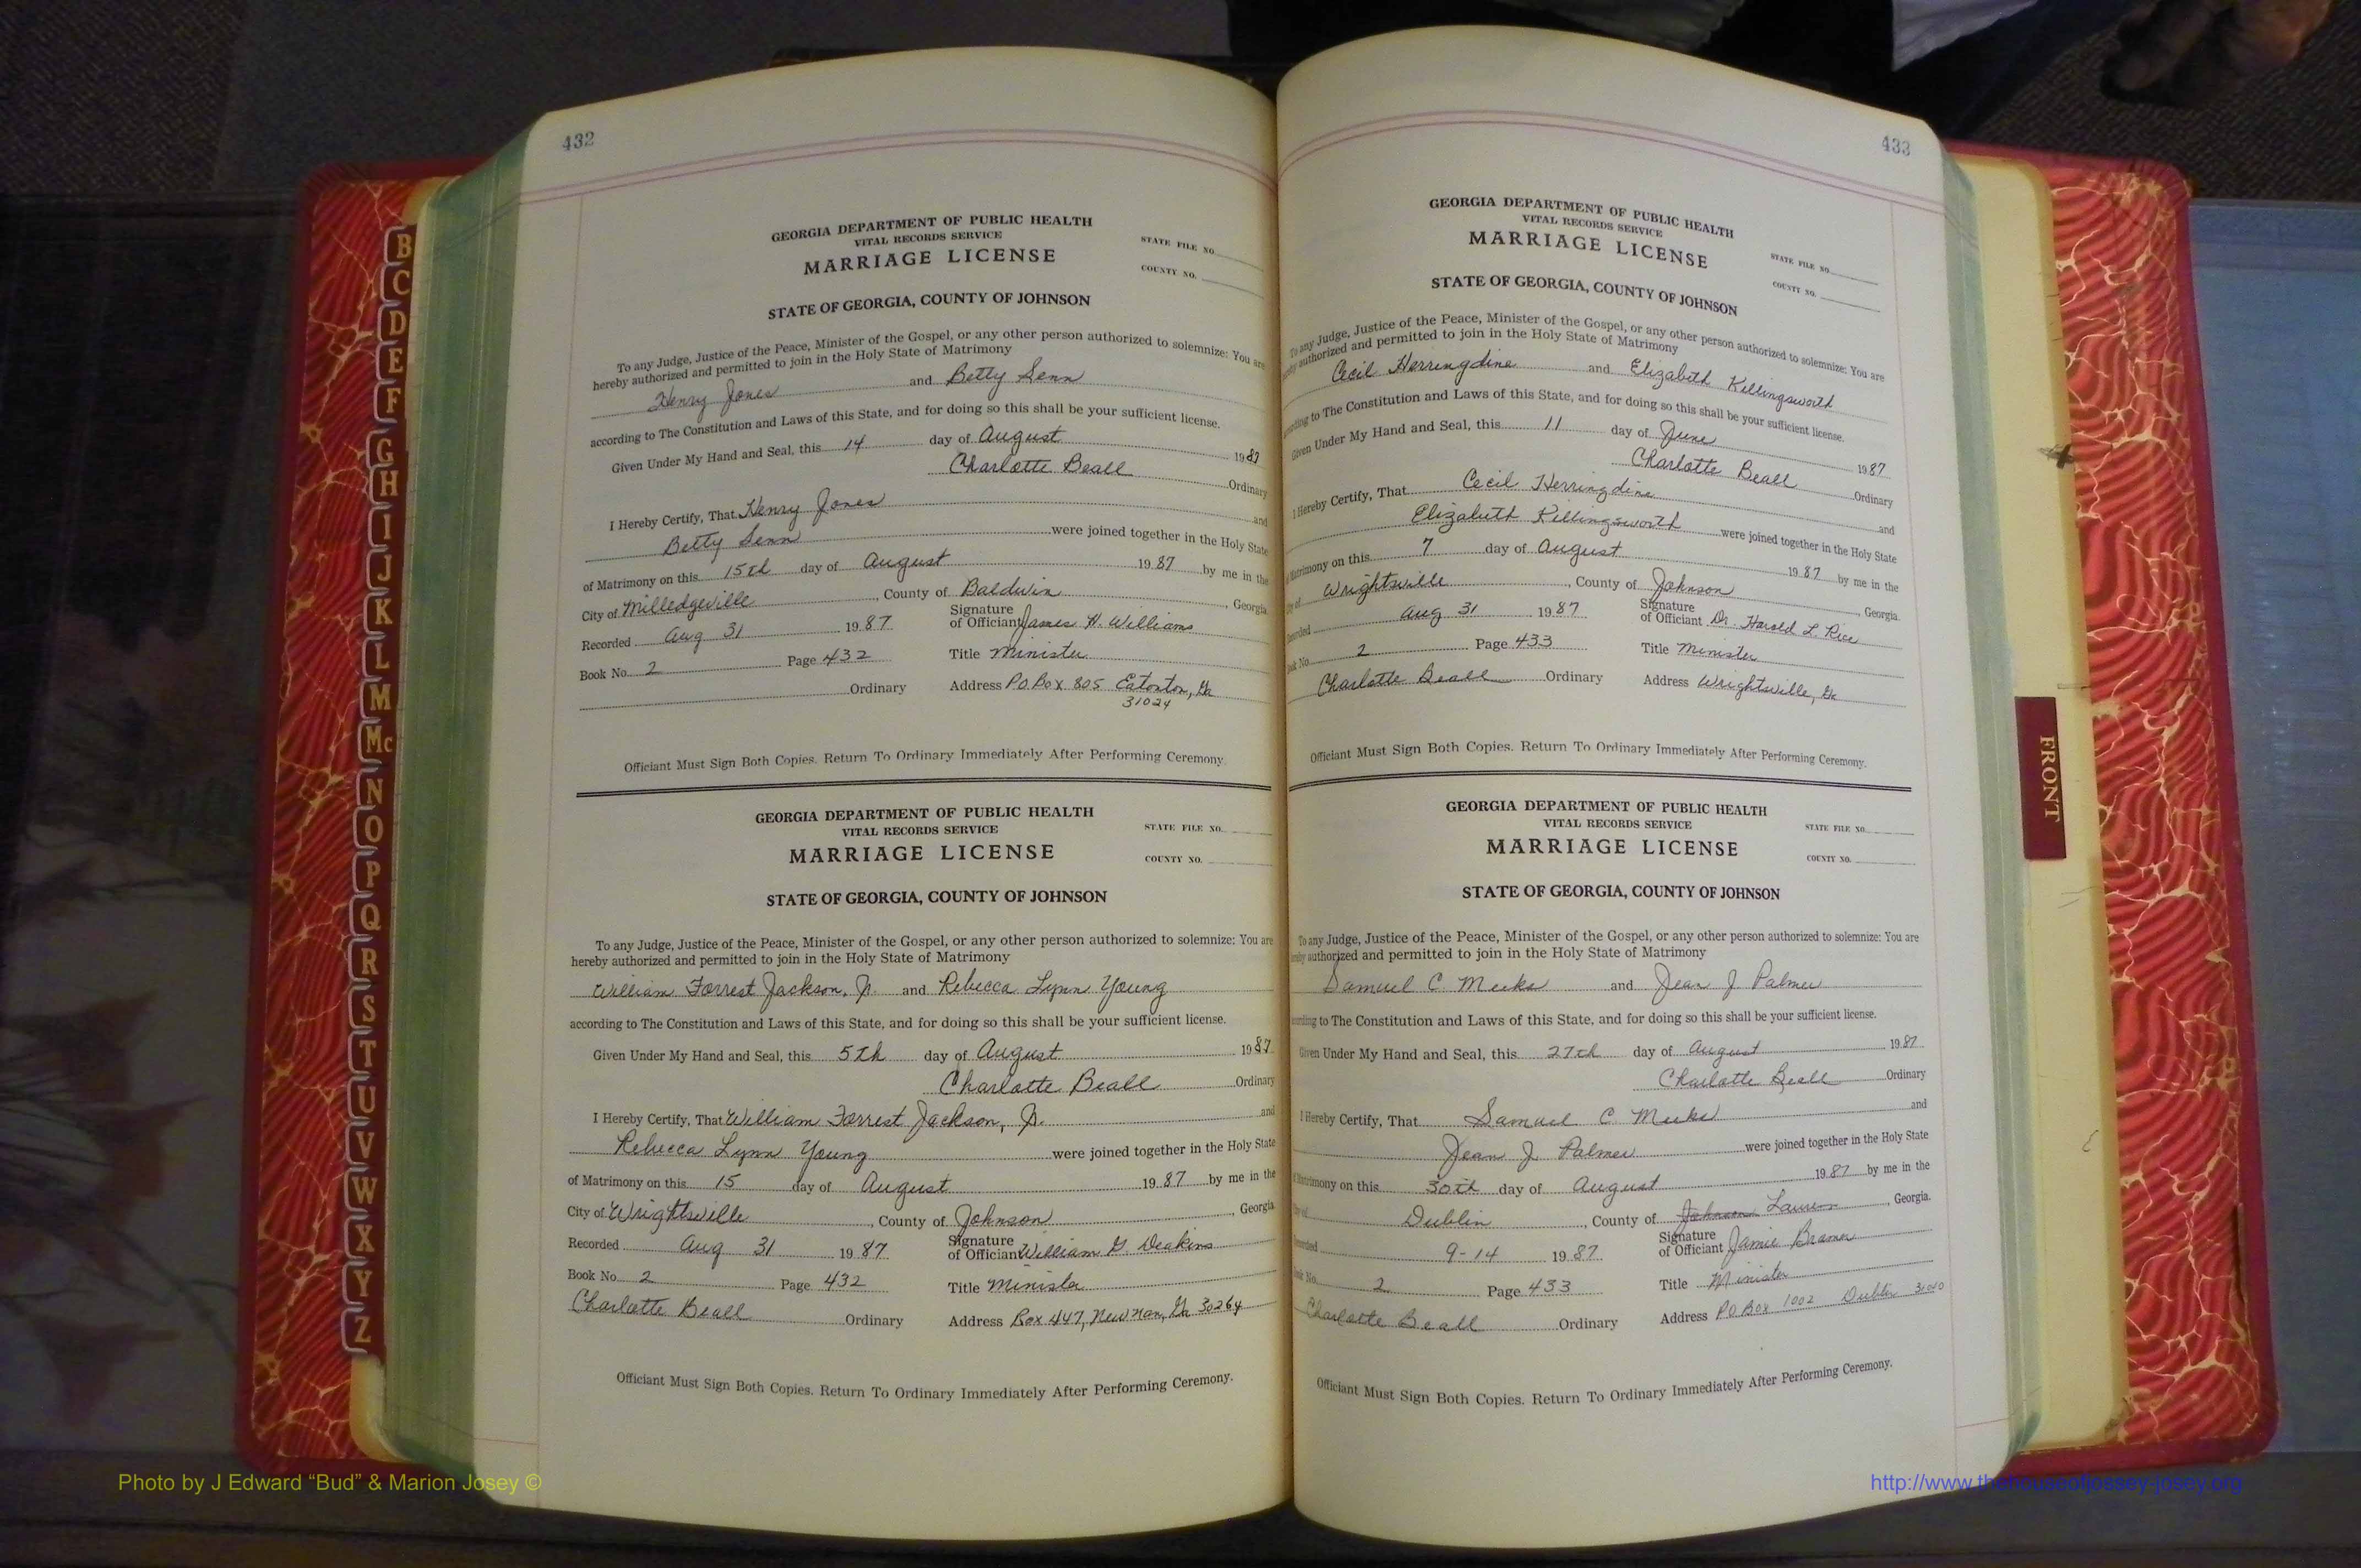 432
GEORGIA DEPARTMENT OF PUBLIC HEALTH
VITAL RECORDS SERVICE
MARRIAGE LICENSE
STATE FILE NO.
COUNTY NO.
STATE OF GEORGIA, COUNTY OF JOHNSON
To any Judge, Justice of the Peace, Minister of the Gospel, or any other person authorized to solemnize: You are
hereby authorized and permitted to join in the Holy State of Matrimony
Henry Jones and Betty Senn
according to The Constitution and Laws of this State, and for doing so this shall be your sufficient license.
Given Under My Hand and Seal, this 14 day of August 1987
Charlotte Beall Ordinary
I Hereby Certify, That Henry Jones and
Betty Senn were joined together in the Holy State
of Matrimony on this 15th day of August 1987 by me in the
City of Milledgeville, County of Baldwin, Georgia
Recorded Aug 31 1987 Signature of Officiant James H. Williams
Book No. 2 Page 432 Title Minister
Ordinary Address P.O. Box 805 Eatonton, Ga
31024
Officiant Must Sign Both Copies. Return To Ordinary Immediately After Performing Ceremony.
GEORGIA DEPARTMENT OF PUBLIC HEALTH
VITAL RECORDS SERVICE
MARRIAGE LICENSE
STATE FILE NO.
COUNTY NO.
STATE OF GEORGIA, COUNTY OF JOHNSON
To any Judge, Justice of the Peace, Minister of the Gospel, or any other person authorized to solemnize: You are
hereby authorized and permitted to join in the Holy State of Matrimony
William Forrest Jackson, Jr. and Rebecca Lynn Young
according to The Constitution and Laws of this State, and for doing so this shall be your sufficient license.
Given Under My Hand and Seal, this 5th day of August 1987
Charlotte Beall Ordinary
I Hereby Certify, That William Forrest Jackson, Jr. and
Rebecca Lynn Young were joined together in the Holy State
of Matrimony on this 15 day of August 1987 by me in the
City of Wrightsville, County of Johnson, Georgia
Recorded Aug 31 1987 Signature of Officiant William G. Deakins
Book No. 2 Page 432 Title Minister
Charlotte Beall Ordinary Address Box 447, Newnan, Ga 30264
Officiant Must Sign Both Copies. Return To Ordinary Immediately After Performing Ceremony.
433
GEORGIA DEPARTMENT OF PUBLIC HEALTH
VITAL RECORDS SERVICE
MARRIAGE LICENSE
STATE FILE NO.
COUNTY NO.
STATE OF GEORGIA, COUNTY OF JOHNSON
To any Judge, Justice of the Peace, Minister of the Gospel, or any other person authorized to solemnize: You are
authorized and permitted to join in the Holy State of Matrimony
Cecil Herringdine and Elizabeth Killingsworth
to The Constitution and Laws of this State, and for doing so this shall be your sufficient license.
Given Under My Hand and Seal, this 11 day of June 1987
Charlotte Beall Ordinary
I Hereby Certify, That Cecil Herringdine and
Elizabeth Killingsworth were joined together in the Holy State
Matrimony on this 7 day of August 1987 by me in the
Wrightsville, County of Johnson, Georgia
Aug 31 1987 Signature of Officiant Dr. Harold L. Rice
2 Page 433 Title Minister
Charlotte Beall Ordinary Address Wrightsville, Ga
Officiant Must Sign Both Copies. Return To Ordinary Immediately After Performing Ceremony.
GEORGIA DEPARTMENT OF PUBLIC HEALTH
VITAL RECORDS SERVICE
MARRIAGE LICENSE
STATE FILE NO.
COUNTY NO.
STATE OF GEORGIA, COUNTY OF JOHNSON
To any Judge, Justice of the Peace, Minister of the Gospel, or any other person authorized to solemnize: You are
authorized and permitted to join in the Holy State of Matrimony
Samuel C. Meeks and Jean J Palmer
to The Constitution and Laws of this State, and for doing so this shall be your sufficient license.
Given Under My Hand and Seal, this 27th day of August 1987
Charlotte Beall Ordinary
I Hereby Certify, That Samuel C Meeks and
Jean J. Palmer were joined together in the Holy State
Matrimony on this 30th day of August 1987 by me in the
Dublin, County of Johnson Laurens, Georgia.
9-14 1987 Signature of Officiant Jamie
2 Page 433 Title Minister
Charlotte Beall Ordinary Address PO Box 1002 Dublin
Officiant Must Sign Both Copies. Return To Ordinary Immediately After Performing Ceremony.
B
C
D
E
F
G
H
I
J
K
L
M
Mc
N
O
P
Q
R
S
T
U
V
W
X
Y
Z
FRONT
Photo by J Edward “Bud” & Marion Josey ©
http://www.thehouseofjossey-josey.org